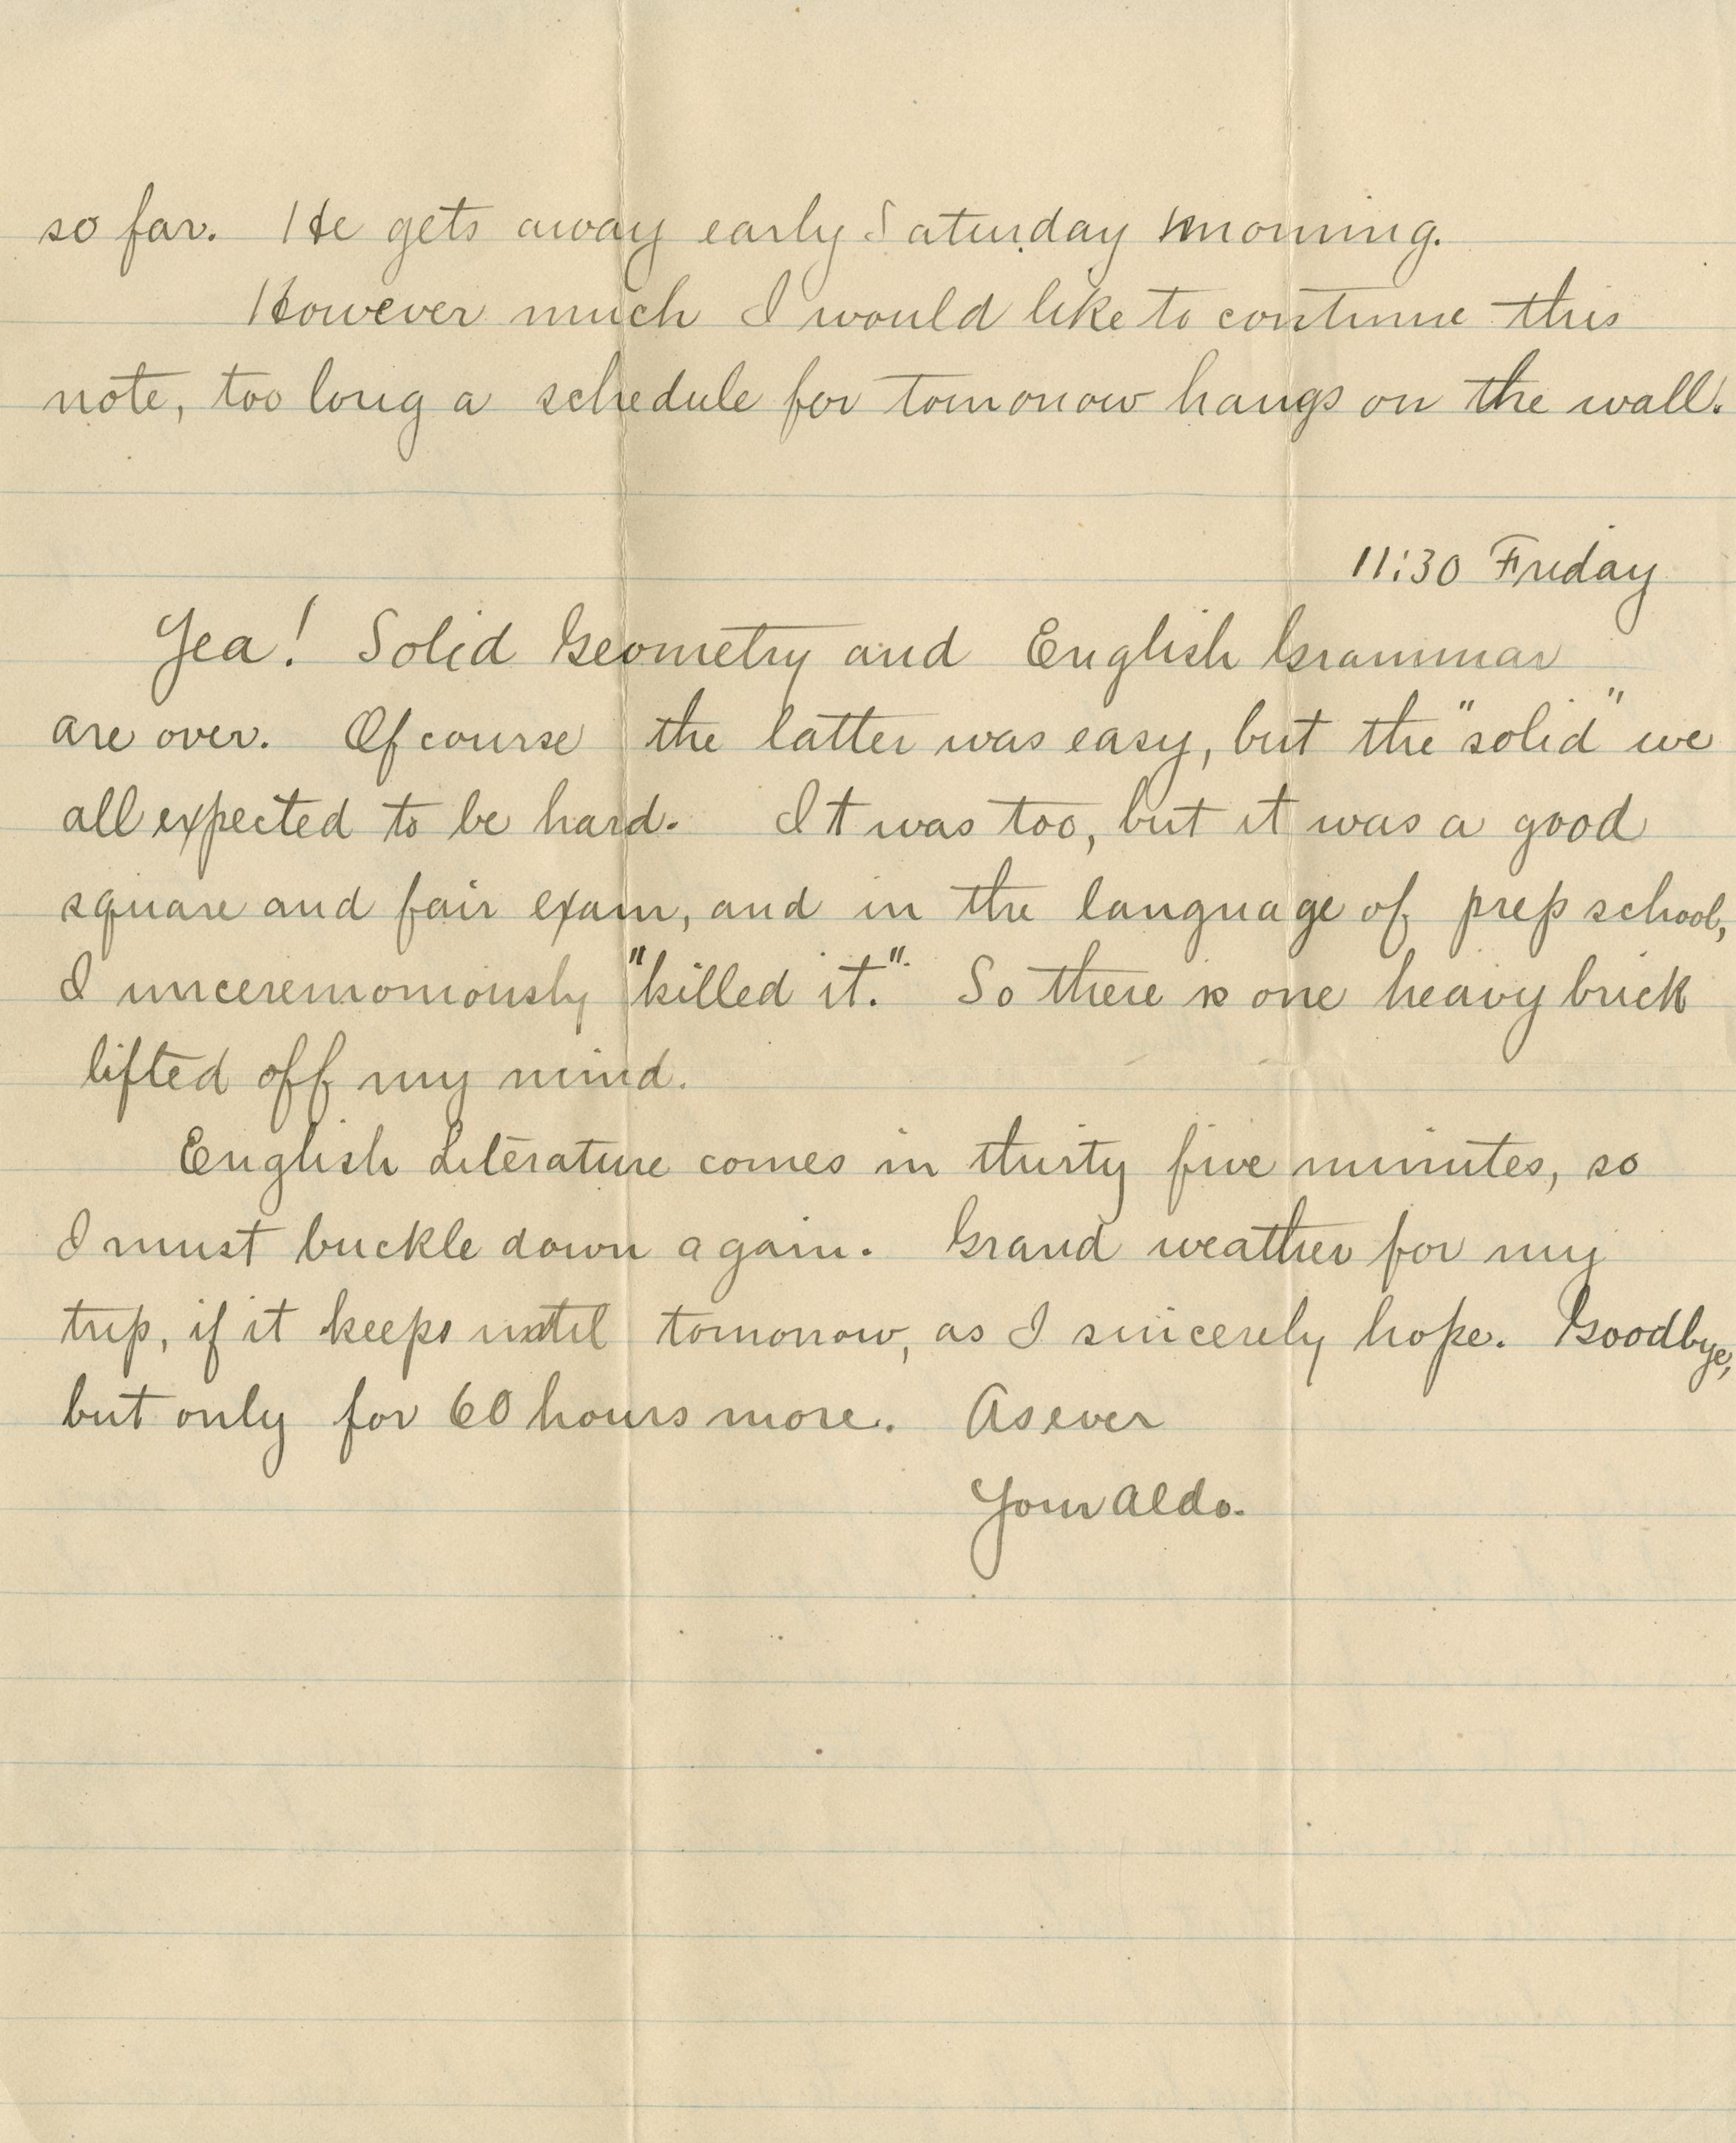 so far. He gets away early Saturday morning.
However much I would like to continue this
note, too long a schedule for tomorrow hangs on the wall.
11:30 Friday
Yea! Solid Geometry and English Grammar
are over. Of course the latter was easy, but the "solid" we
all expected to be hard. It was too, but it was a good
square and fair exam, and in the language of prep school,
I unceremoniously "killed it.". So there is one heavy brick
lifted off my mind.
English Literature comes in thirty five minutes, so
I must buckle down again. Grand weather for my
trip, if it keeps until tomorrow, as I sincerely hope. Goodbye,
but only for 60 hours more. As ever
Your Aldo.